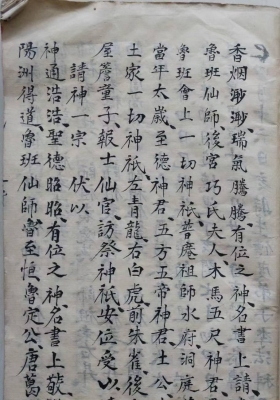 香烟渺渺瑞氣騰騰有位之神名書上請
魯班仙師後宮巧氏夫人木馬五尺神君
魯班會上一切神祇普庵祖師水府洞庭
當年太歲至德神君五方五帝神君土公土
土家一切神祇左青龍右白虎前朱雀後
屋簷童子報士仙官訪祭神祇安位受以
請神一宗 伏以
神通浩浩聖德昭昭有位之神名書上
陽洲得道魯班仙師魯至恒魯定公唐萬